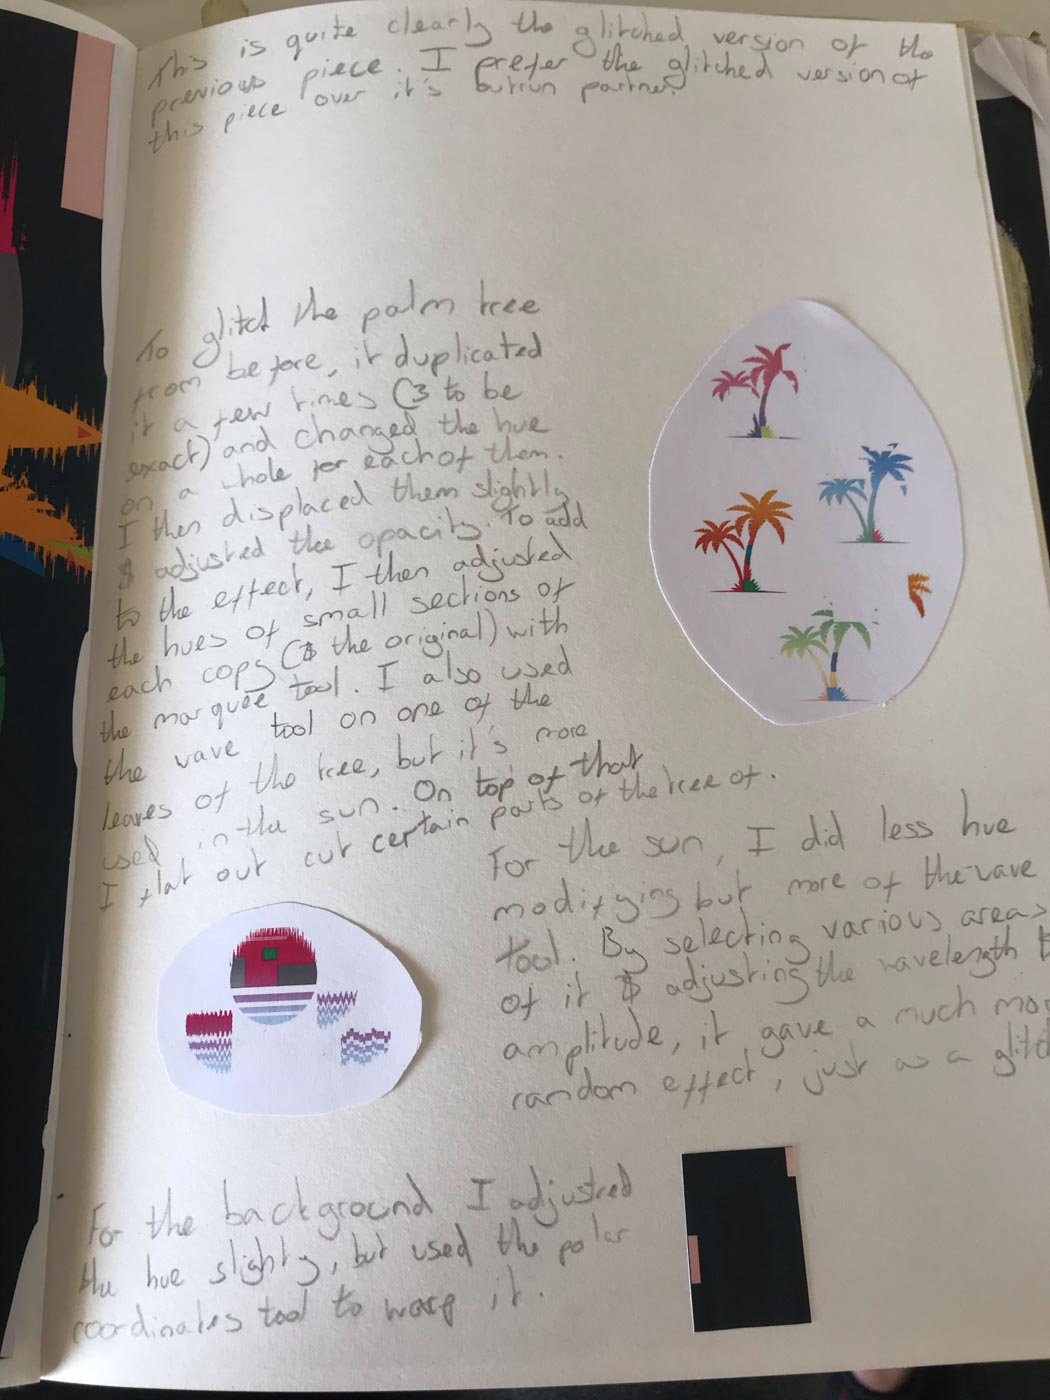 This is quite clearly the glitched version of the
previous piece. I prefer the glitched version of
this piece over it's partner.
To glitch the palm tree
from before, it duplicated
it a few times (3 to be
exact) and changed the hue
on a whole for each of them.
I then displaced them slightly
& adjusted the opacity. To add
to the effect, I then adjusted
the hues of small sections of
each copy (& the original) with
the marquee tool. I also used
the wave tool on one of the
leaves of the tree, but it's more
used in the sun. On top of that
I flat out cut certain parts of the tree of.
For the sun, I did less hue
modifying but more of the wave
tool. By selecting various areas
of it & adjusting the wavelength &
amplitude, it gave a much mor
random effect, just as a glitc
For the background I adjusted
the hue slighty, but used the polar
coordinates tool to warp it.